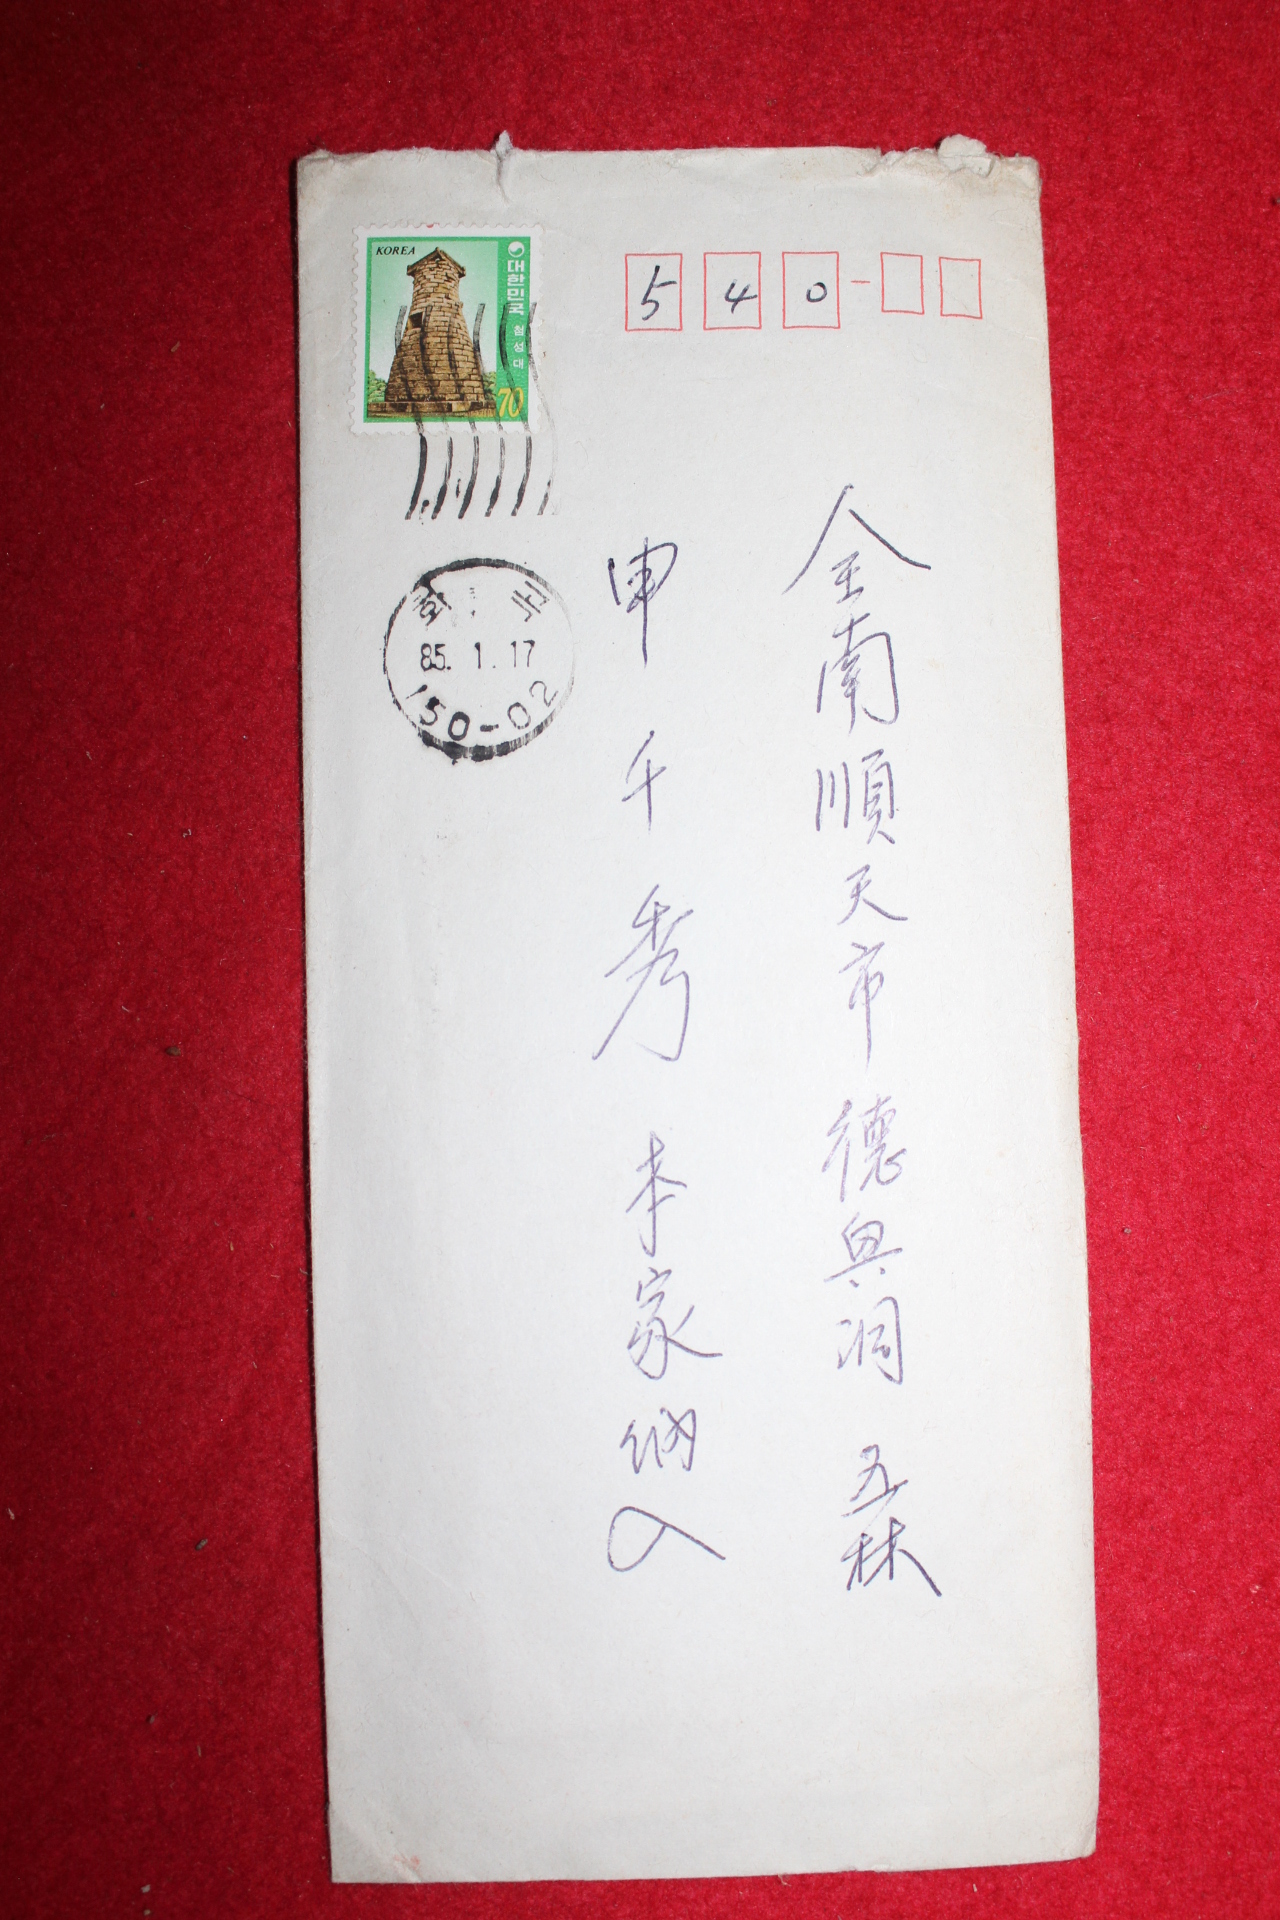 KOREA
대한민국
첨성대
70
540-
85.1.17
150-02
全南順天市德興洞 五林
申千秀 本家納入